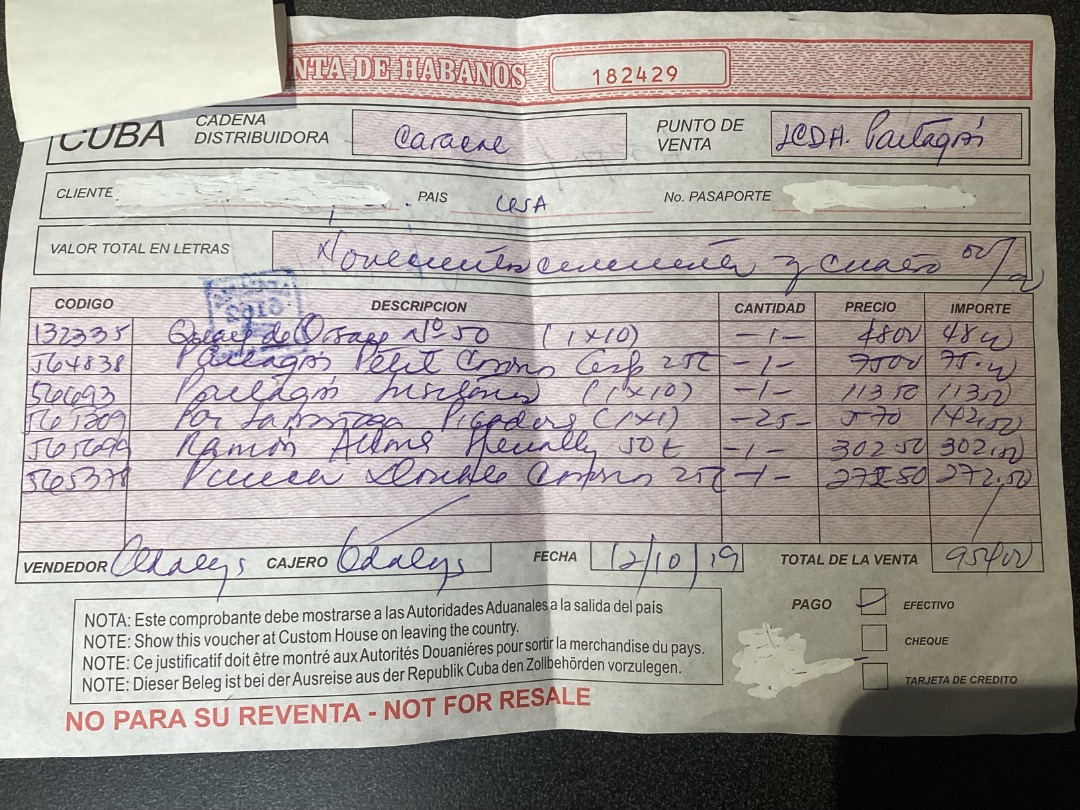 NTA DE HABANOS 182429
CUBA CADENA DISTRIBUIDORA PUNTO DE VENTA Partagás
CLIENTE PAIS USA No. PASAPORTE
VALOR TOTAL EN LETRAS y cuatro 00/
CODIGO DESCRIPCION CANTIDAD PRECIO IMPORTE
132335 Nº 50 (1x10) -1- 4800 4800
564838 Partagás Petit 25 -1- 7500 75.00
Partagás (1x10) -1- 113 50 113 50
Por Larrañaga (1x1) -25- 5 70 142,50
565699 Ramón 50 -1- 302 50 302,50
565378 25 -1- 272 50 272,50
VENDEDOR Odalys CAJERO Odalys FECHA 12/10/19 TOTAL DE LA VENTA 95400
NOTA: Este comprobante debe mostrarse a las Autoridades Aduanales a la salida del país
NOTE: Show this voucher at Custom House on leaving the country.
NOTE: Ce justificatif doit être montré aux Autorités Douaniéres pour sortir la merchandise du pays.
NOTE: Dieser Beleg ist bei der Ausreise aus der Republik Cuba den Zollbehörden vorzulegen.
PAGO EFECTIVO
CHEQUE
TARJETA DE CREDITO
NO PARA SU REVENTA - NOT FOR RESALE